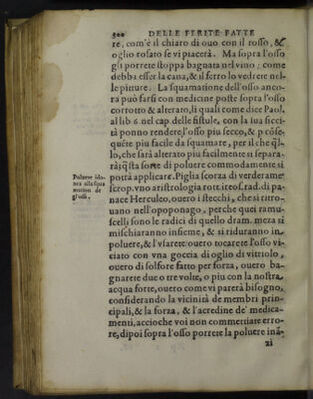 300 DELLE FERITE FATTE
re, com'è il chiaro di ouo con il rosso, &
oglio rosato se vi piacerà. Ma sopra l'osso
gli porrete stoppa bagnata nel vino; come
debba esser la cana, & il ferro lo vedrete nel-
le pitture. La squamatione dell'osso anco-
ra può farsi con medicine poste sopra l'osso
corrotto & alterato, li quali come dice Paol.
al lib 6. nel cap. delle fistule, con la lua sicci-
tà ponno rendere l'osso piu secco, & p cōse-
quēte piu facile da squamare, per il che q̃l-
lo, che sarà alterato piu facilmente si separa-
rà; q̃sta sorte di poluere commodamente si
potrà applicare. Piglia scorza di verderame
scrop. vno aristrologia rott. ireos. rad. di pa-
nace Herculeo, ouero i stecchi, che si ritro-
uano nell'opoponago, perche quei ramu-
scelli sono le radici di quello dram. meza si
mischiaranno insieme, & si riduranno in
poluere, & l'vsarete ouero tocarete l'osso vi-
ciato con vna goccia di oglio di vitriolo,
ouero di solfore fatto per forza, ouero ba-
gnarete due o tre volte, o piu con la nostra
acqua forte, ouero come vi parerà bisogno,
considerando la vicinità de membri prin-
cipali, & la forza, & l'acredine de' medica-
menti, accioche voi non commettiate erro-
re, dipoi sopra l'osso porrete la poluere inā-
zi
Poluere ido-
nea alla squa
mation de
gl'ossi.